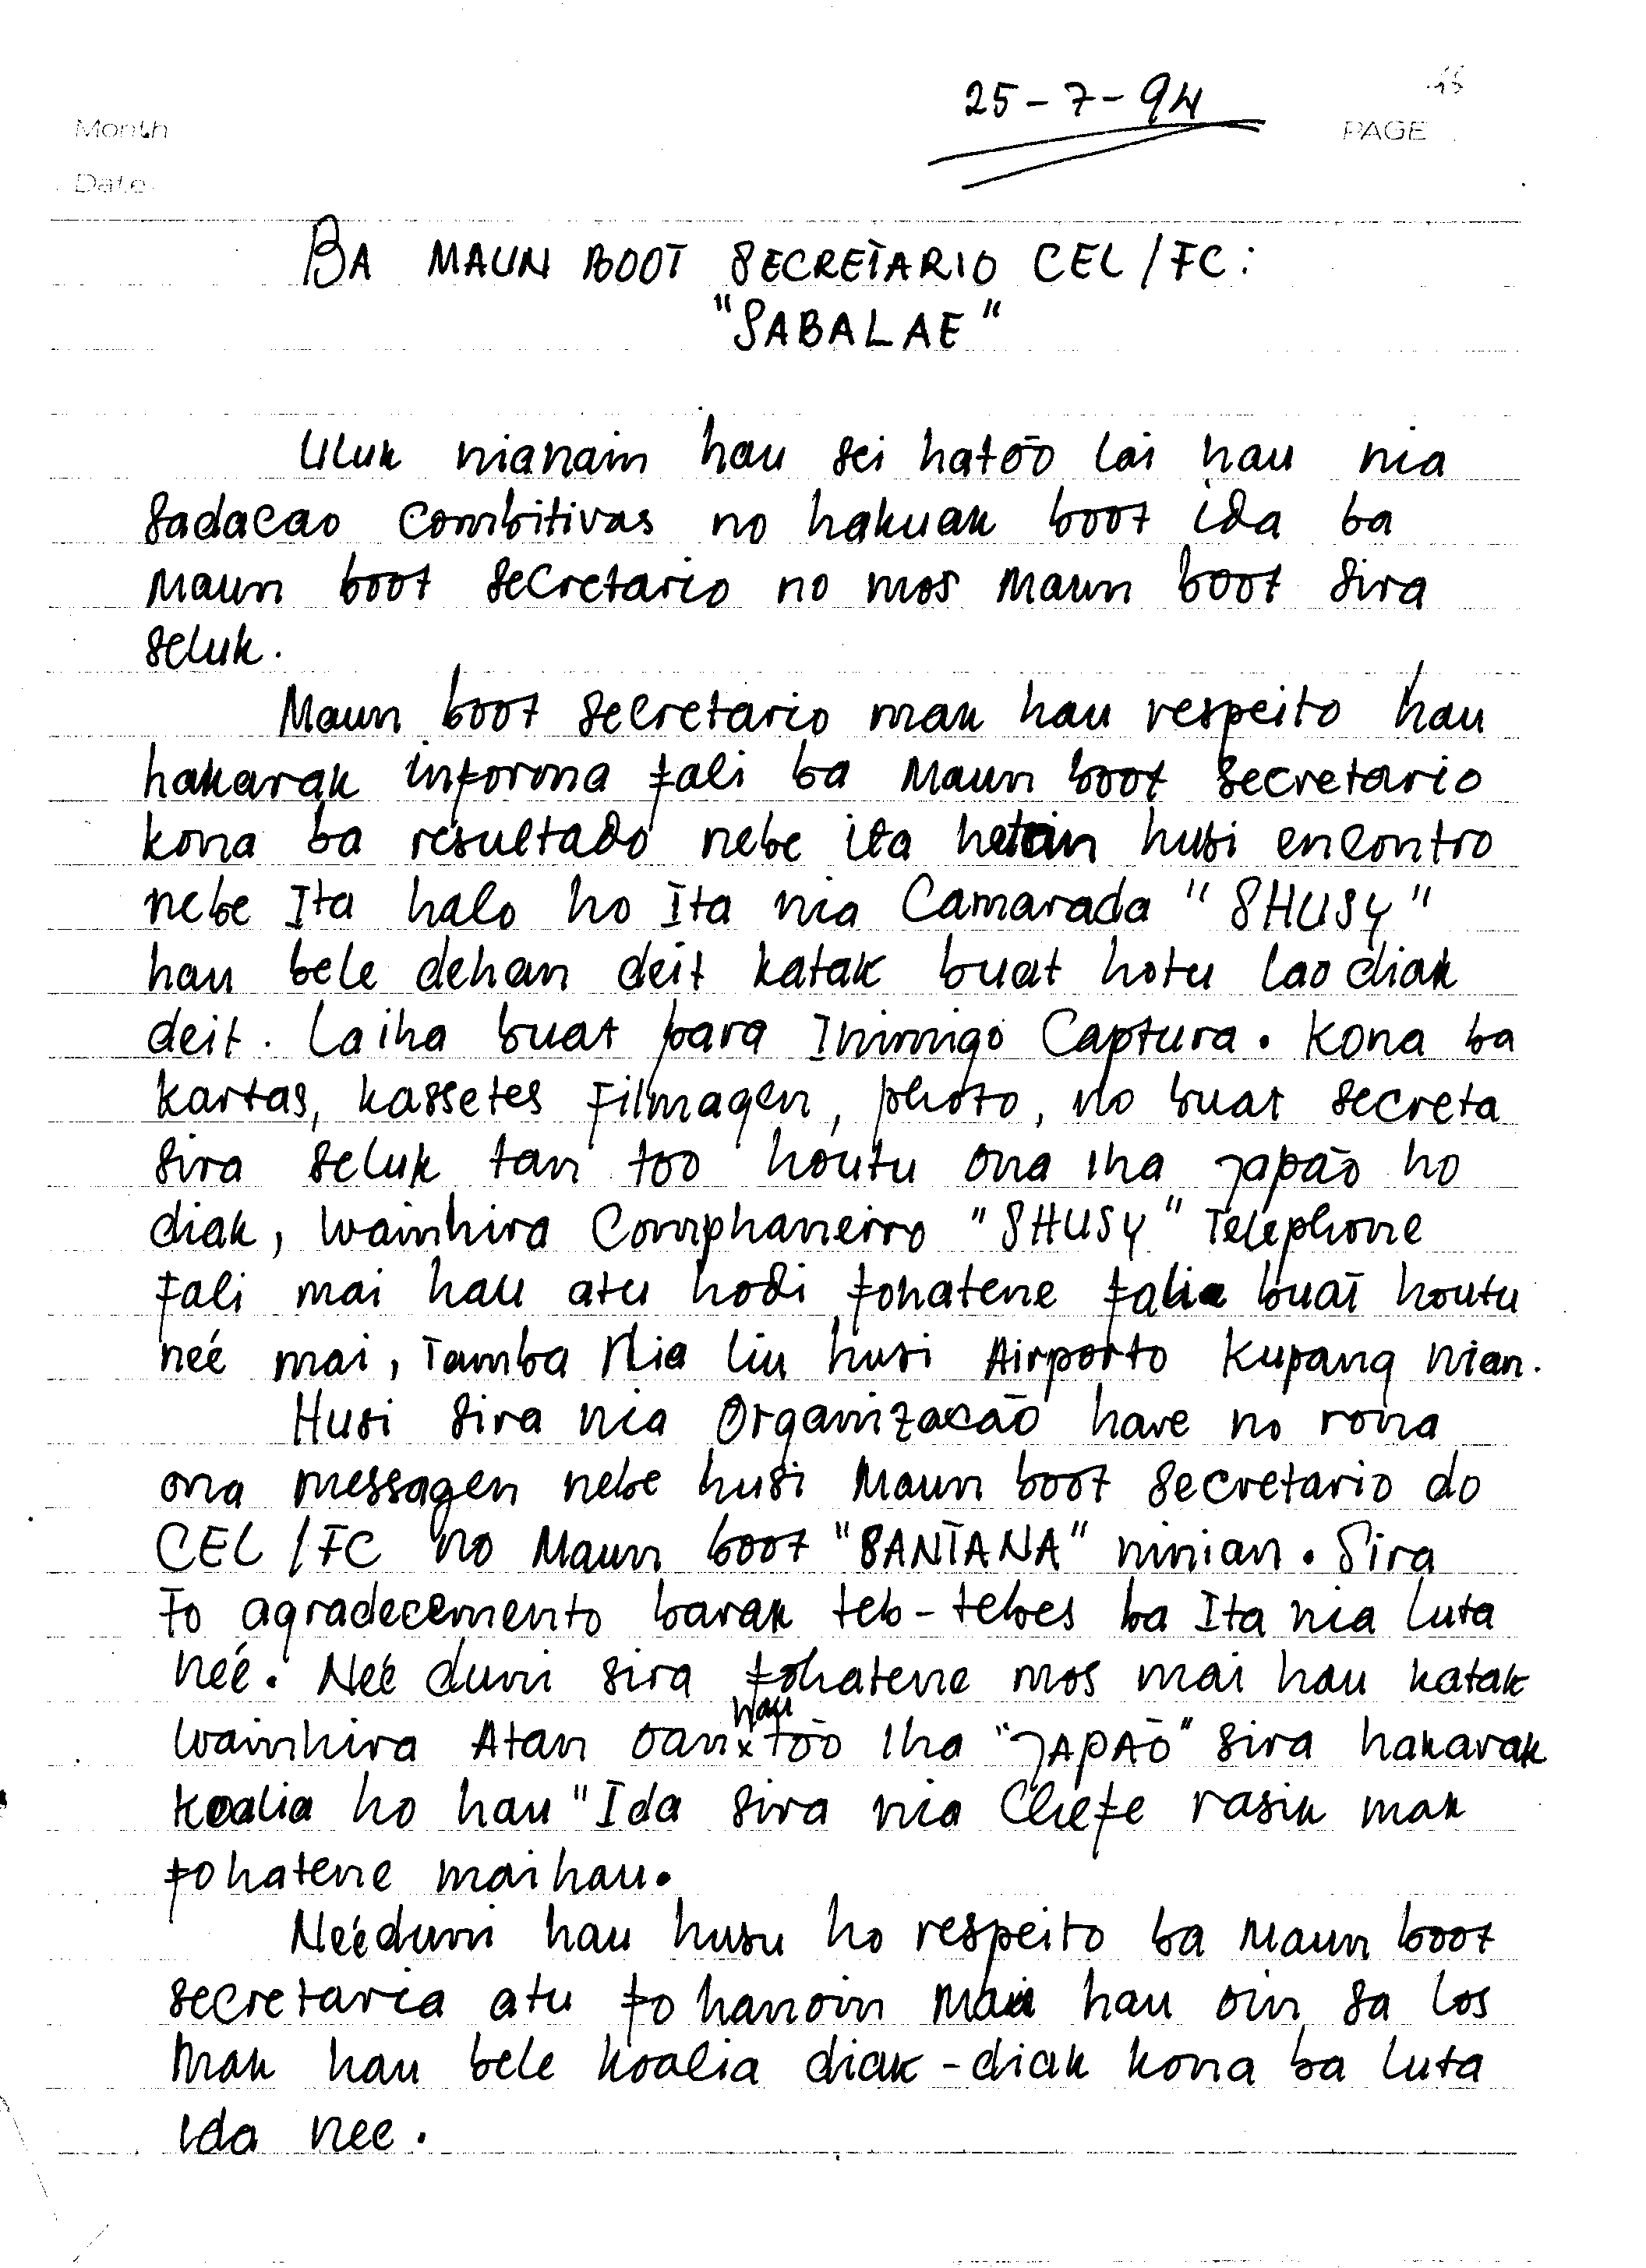 25-7-94
Month
PAGE
Date
BA MAUN BOOT SECRETARIO CEL/FC:
"SABALAE"
Uluk nianain hau sei hatóo lai hau nia
Sadacao Combitivas no hakuak boot ida ba
Maun boot Secretario no mos Maun boot Sira
Seluk.
Maun boot Secretario mak hau respeito hau
hakarak informa fali ba Maun boot Secretario
kona ba resultado nebe ita hetan husi encontro
nebe Ita halo ho Ita nia Camarada "SHUSY"
hau bele dehan deit katak buat hotu lao diak
deit. La iha buat para Inimigo Captura. Kona ba
kartas, kassetes Filmagen, photo, no buat secreta
Sira Seluk tan too houtu ona iha Japão ho
diak, wainhira Comphaneirro "SHUSY" Telephone
fali mai hau atu hodi fohatene falie buat houtu
neé mai, Tamba Nia liu husi Airporto Kupang nian.
Husi Sira nia Organizacão have no rona
ona messagen nebe husi Maun boot Secretario do
CEL/FC no Maun boot "SANTANA" ninian. Sira
Fo agradecemento barak teb-tebes ba Ita nia luta
neé. Neé duni sira fohatene mos mai hau katak
hau
wainhira Atan oan x tóo Iha "JAPÃO" Sira hakarak
koalia ho hau "Ida Sira nia Chefe rasik mak
fohatene mai hau.
Neéduni hau husu ho respeito ba Maun boot
secretaria atu fo hanoin mai hau oin sa los
mak hau bele koalia diak-diak kona ba luta
ida nee.